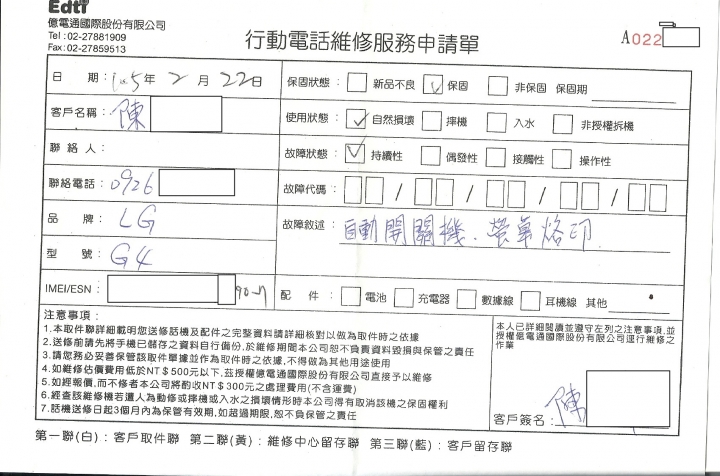 Edtl
億電通國際股份有限公司
Tel : 02-27881909
Fax : 02-27859513
行動電話維修服務申請單
A022
日 期: 105年 2 月 22日
保固狀態: 新品不良 保固 非保固 保固期
客戶名稱: 陳
使用狀態: 自然損壞 摔機 入水 非授權拆機
聯絡人:
故障狀態: 持續性 偶發性 接觸性 操作性
聯絡電話: 0926
故障代碼: / / / /
品 牌: LG
故障敘述: 自動開關機、螢幕烙印
型 號: G4
IMEI/ESN:
配 件: 電池 充電器 數據線 耳機線 其他
注意事項:
1.本取件聯詳細載明您送修話機及配件之完整資料請詳細核對以做為取件時之依據
2.送修前請先將手機已儲存之資料自行備份,於維修期間本公司恕不負責資料毀損與保管之責任
3.請您務必妥善保管該取件單據並作為取件時之依據,不得做為其他用途使用
4.如維修估價費用低於NT$500元以下,茲授權億電通國際股份有限公司直接予以維修
5.如經報價,而不修者本公司將酌收NT$300元之處理費用(不含運費)
6.經查該維修機若遭人為動修或摔機或入水之損壞情形時本公司得有取消該機之保固權利
7.話機送修日起3個月內為保管有效期,如超過期限,恕不負保管之責任
本人已詳細閱讀並遵守左列之注意事項,並
授權億電通國際股份有限公司進行維修之
作業
客戶簽名: 陳
第一聯(白):客戶取件聯 第二聯(黃):維修中心留存聯 第三聯(藍):客戶留存聯